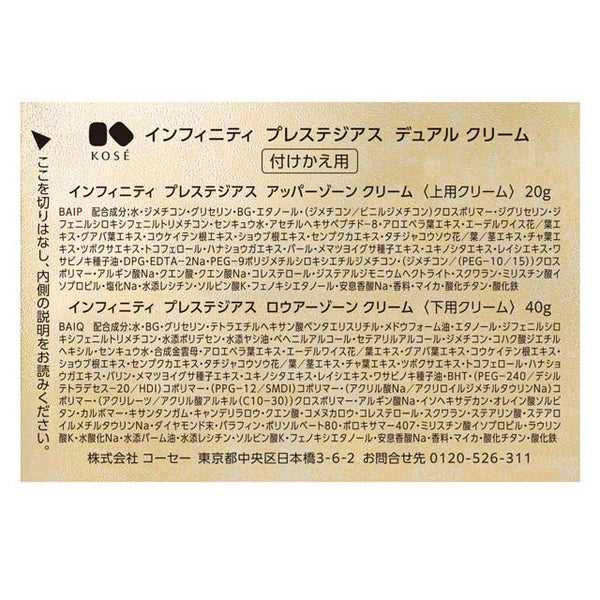 KOSÉ
インフィニティ プレステジアス デュアル クリーム
付けかえ用
▲ここを切りはなし、内側の説明をお読みください。
インフィニティ プレステジアス アッパーゾーン クリーム〈上用クリーム〉20g
BAIP 配合成分:水・ジメチコン・グリセリン・BG・エタノール・(ジメチコン/ビニルジメチコン)クロスポリマー・ジグリセリン・ジ
フェニルシロキシフェニルトリメチコン・センキュウ水・アセチルヘキサペプチド-8・アロエベラ葉エキス・エーデルワイス花/葉エ
キス・グアバ葉エキス・コウケイテン根エキス・ショウブ根エキス・センプクカエキス・タチジャコウソウ花/葉/茎エキス・チャ葉エ
キス・ツボクサエキス・トコフェロール・ハナショウガエキス・パール・メマツヨイグサ種子エキス・ユキノシタエキス・レイシエキス・ワ
サビノキ種子油・DPG・EDTA-2Na・PEG-9ポリジメチルシロキシエチルジメチコン・(ジメチコン/(PEG-10/15))クロス
ポリマー・アルギン酸Na・クエン酸・クエン酸Na・コレステロール・ジステアルジモニウムヘクトライト・スクワラン・ミリスチン酸イ
ソプロピル・塩化Na・水添レシチン・ソルビン酸K・フェノキシエタノール・安息香酸Na・香料・マイカ・酸化チタン・酸化鉄
インフィニティ プレステジアス ロウアーゾーン クリーム〈下用クリーム〉40g
BAIQ 配合成分:水・BG・グリセリン・テトラエチルヘキサン酸ペンタエリスリチル・メドウフォーム油・エタノール・ジフェニルシロ
キシフェニルトリメチコン・水添ポリデセン・水添ヤシ油・ベヘニルアルコール・セテアリルアルコール・ジメチコン・コハク酸ジエチル
ヘキシル・センキュウ水・合成金雲母・アロエベラ葉エキス・エーデルワイス花/葉エキス・グアバ葉エキス・コウケイテン根エキス・
ショウブ根エキス・センプクカエキス・タチジャコウソウ花/葉/茎エキス・チャ葉エキス・ツボクサエキス・トコフェロール・ハナショウガ
エキス・パリン・メマツヨイグサ種子エキス・ユキノシタエキス・レイシエキス・ワサビノキ種子油・BHT・(PEG-240/デシル
テトラデセス-20/HDI)コポリマー・(PPG-12/SMDI)コポリマー・(アクリル酸Na/アクリロイルジメチルタウリンNa)コ
ポリマー・(アクリレーツ/アクリル酸アルキル(C10-30))クロスポリマー・アルギン酸Na・イソヘキサデカン・オレイン酸ソルビ
タン・カルボマー・キサンタンガム・キャンデリラロウ・クエン酸・コメヌカロウ・コレステロール・スクワラン・ステアリン酸・ステアロ
イルメチルタウリンNa・ダイヤモンド末・パラフィン・ポリソルベート80・ポロキサマー407・ミリスチン酸イソプロピル・ラウリン
酸K・水酸化Na・水添パーム油・水添レシチン・ソルビン酸K・フェノキシエタノール・安息香酸Na・香料・マイカ・酸化チタン・酸化鉄
株式会社 コーセー 東京都中央区日本橋3-6-2 お問合せ先 0120-526-311